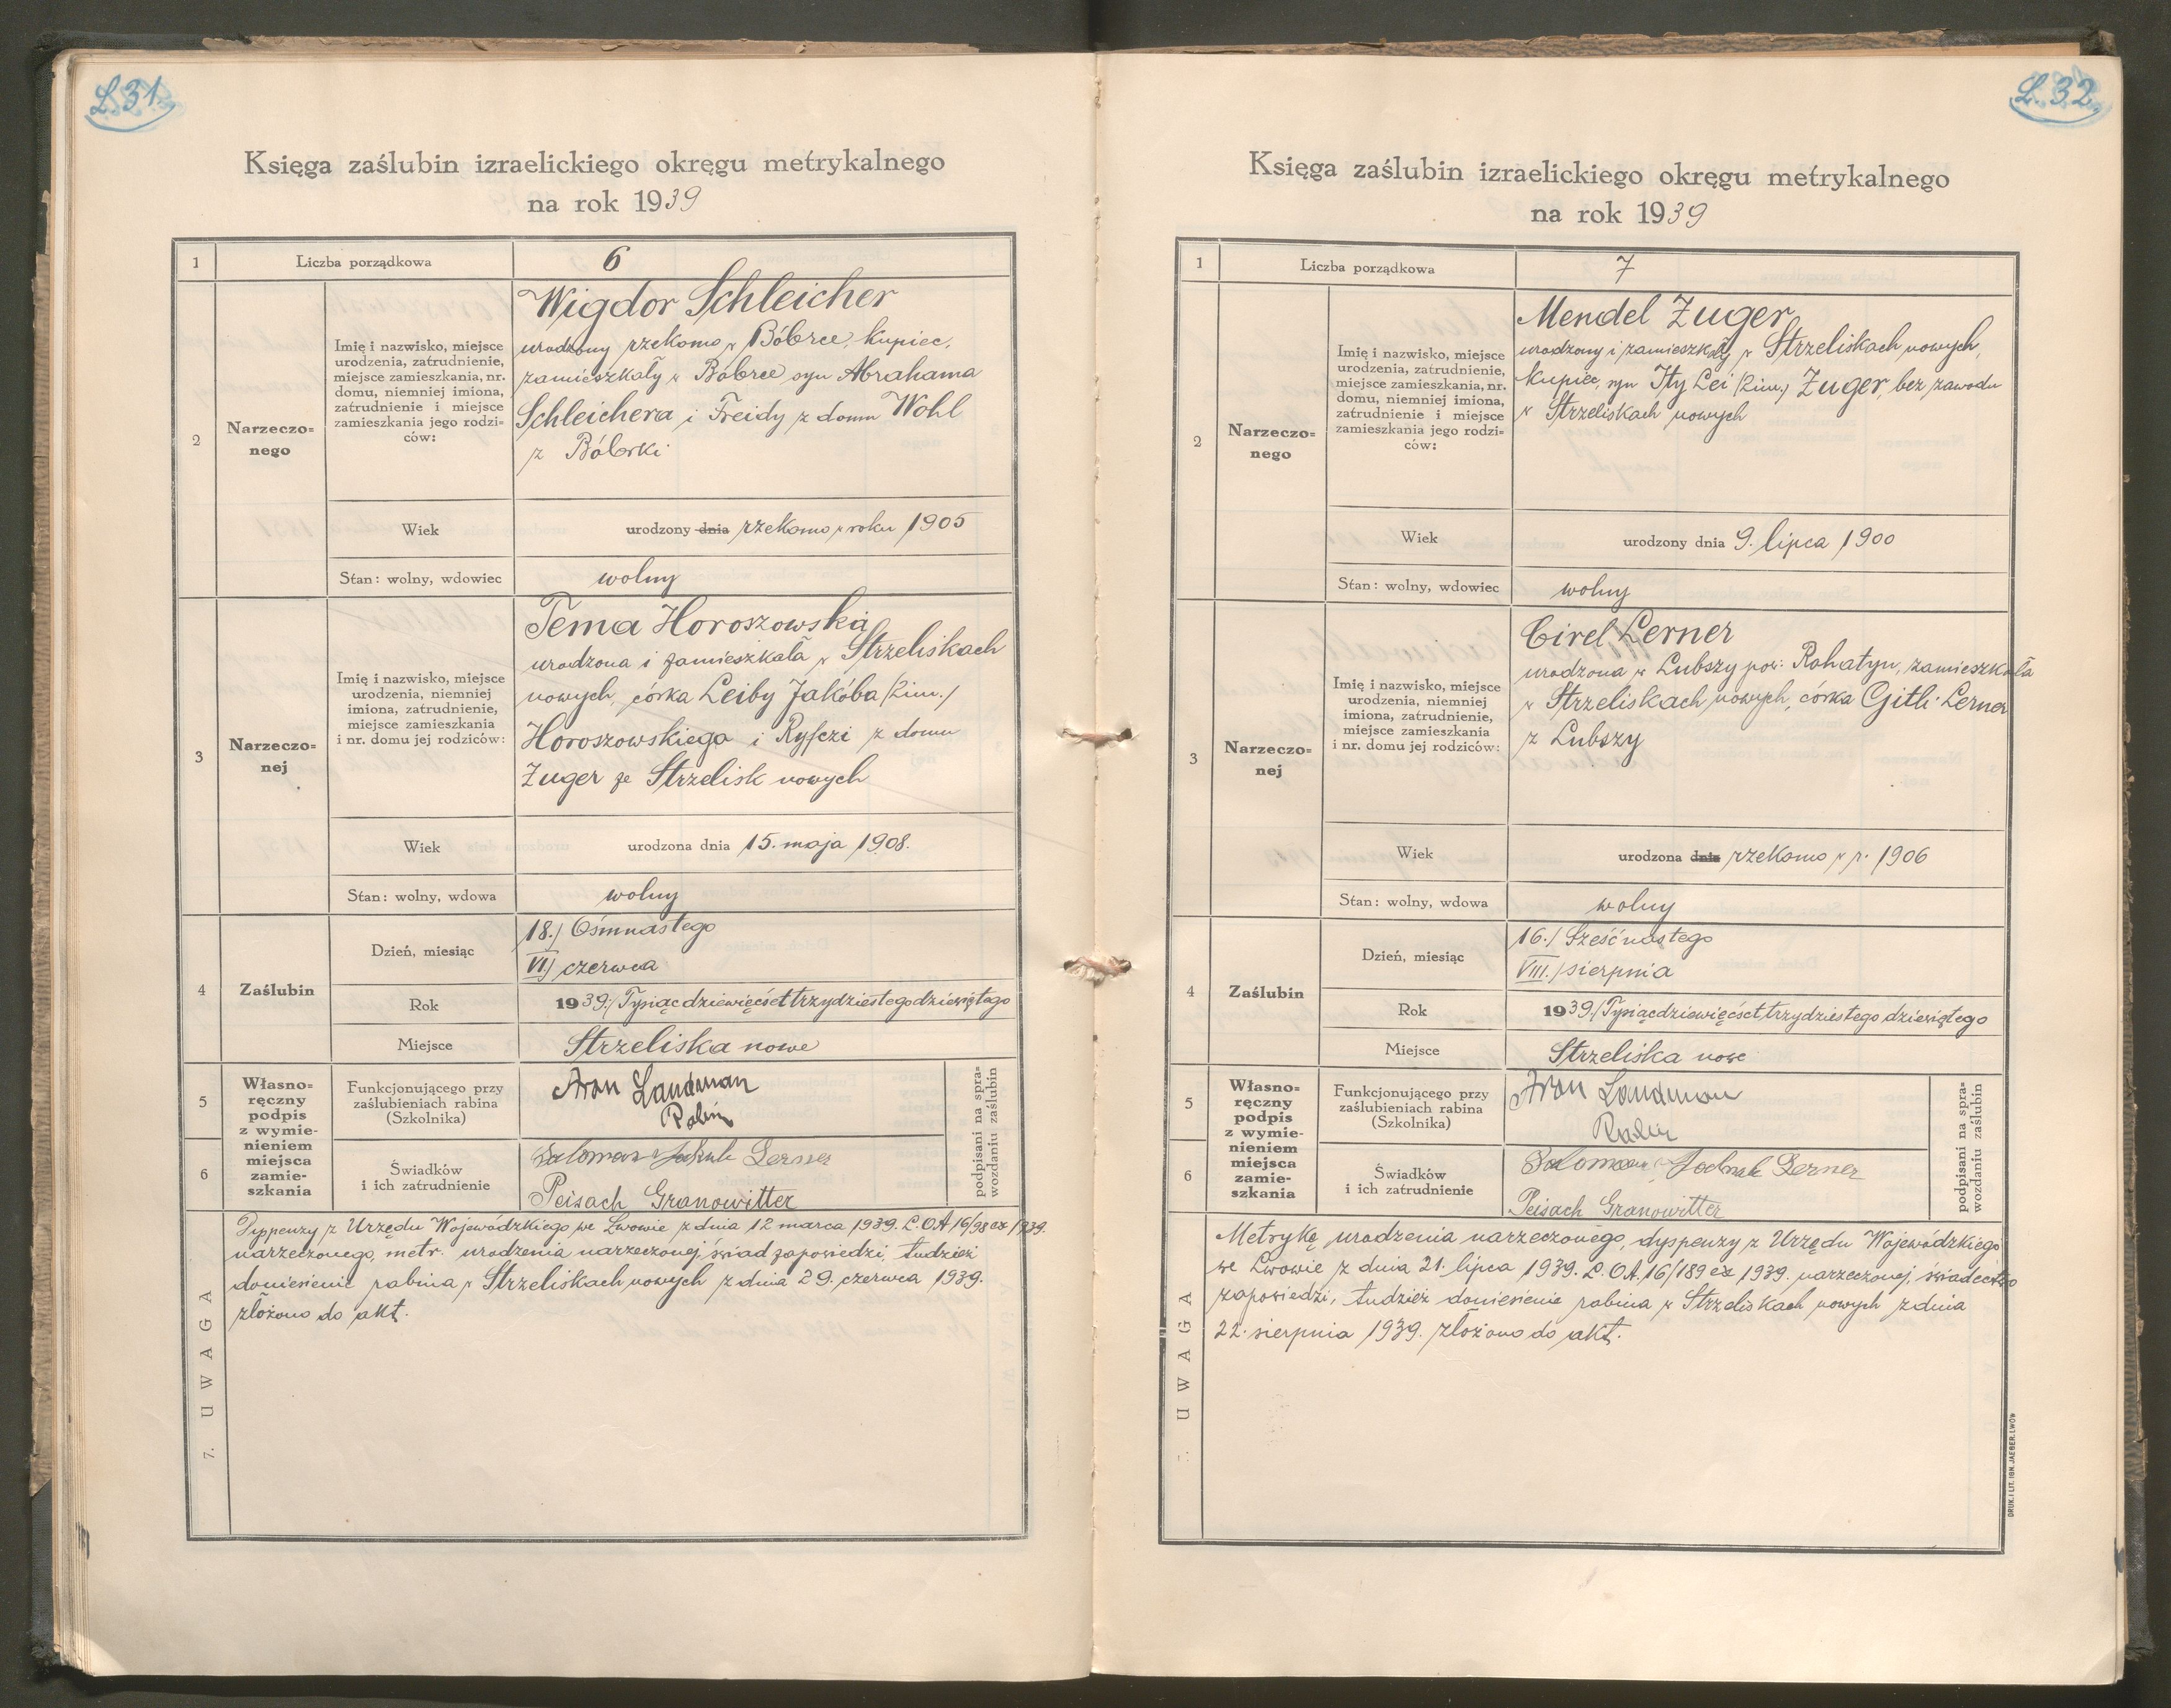 L. 31
Księga zaślubin izraelickiego okręgu metrykalnego
na rok 1939
1
Liczba porządkowa
6
2
Narzeczo=
nego
Imię i nazwisko, miejsce
urodzenia, zatrudnienie,
miejsce zamieszkania, nr.
domu, niemniej imiona,
zatrudnienie i miejsce
zamieszkania jego rodzi=
ców:
Wigdor Schleicher
urodzony rzekomo w Bóbrce, kupiec,
zamieszkały w Bóbrce, syn Abrahama
Schleichera i Freidy z domu Wohl
z Bóbrki
Wiek
urodzony dnia rzekomo w roku 1905
Stan: wolny, wdowiec
wolny
3
Narzeczo=
nej
Imię i nazwisko, miejsce
urodzenia, niemniej
imiona, zatrudnienie,
miejsce zamieszkania
i nr. domu jej rodziców:
Tema Horoszowska
urodzona i zamieszkała w Strzeliskach
nowych, córka Leiby Jakóba /2im./
Horoszowskiego i Ryfczi z domu
Zuger ze Strzelisk nowych
Wiek
urodzona dnia 15. maja 1908.
Stan: wolny, wdowa
wolny
4
Zaślubin
Dzień, miesiąc
18./ Ośmnastego
VI./ czerwca
Rok
1939./ Tysiącdziewięćsettrzydziestegodziewiątego
Miejsce
Strzeliska nowe
5
6
Własno=
ręczny
podpis
z wymie=
nieniem
miejsca
zamie=
szkania
Funkcjonującego przy
zaślubieniach rabina
(Szkolnika)
Aron Landman
Rabin
Świadków
i ich zatrudnienie
Salomon Jakub Lerner
Peisach Granowitter
podpisani na spra=
wozdaniu zaślubin
7. UWAGA
Dyspenzy z Urzędu Wojewódzkiego we Lwowie z dnia 12 marca 1939. L.OA 16/98 ex 1939.
narzeczonego, metr. urodzenia narzeczonej, świad. zapowiedzi, tudzież
doniesienie rabina w Strzeliskach nowych z dnia 29. czerwca 1939.
złożono do akt.
L. 32
Księga zaślubin izraelickiego okręgu metrykalnego
na rok 1939
1
Liczba porządkowa
7
2
Narzeczo=
nego
Imię i nazwisko, miejsce
urodzenia, zatrudnienie,
miejsce zamieszkania, nr.
domu, niemniej imiona,
zatrudnienie i miejsce
zamieszkania jego rodzi=
ców:
Mendel Zuger
urodzony i zamieszkały w Strzeliskach nowych,
kupiec, syn Ity Lei /2im./ Zuger, bez zawodu
w Strzeliskach nowych
Wiek
urodzony dnia 9. lipca 1900
Stan: wolny, wdowiec
wolny
3
Narzeczo=
nej
Imię i nazwisko, miejsce
urodzenia, niemniej
imiona, zatrudnienie,
miejsce zamieszkania
i nr. domu jej rodziców:
Cirel Lerner
urodzona w Lubszy pow: Rohatyn, zamieszkała
w Strzeliskach nowych, córka Gitli Lerner
z Lubszy
Wiek
urodzona dnia rzekomo w r. 1906
Stan: wolny, wdowa
wolny
4
Zaślubin
Dzień, miesiąc
16./ Sześćnastego
VIII./ sierpnia
Rok
1939./ Tysiącdziewięćsettrzydziestego dziewiątego
Miejsce
Strzeliska nowe
5
6
Własno=
ręczny
podpis
z wymie=
nieniem
miejsca
zamie=
szkania
Funkcjonującego przy
zaślubieniach rabina
(Szkolnika)
Aron Landman
Rabin
Świadków
i ich zatrudnienie
Salomon Jakub Lerner
Peisach Granowitter
podpisani na spra=
wozdaniu zaślubin
UWAGA
Metrykę urodzenia narzeczonego, dyspenzy z Urzędu Wojewódzkiego
we Lwowie z dnia 21. lipca 1939. L.OA.16/189 ex 1939. narzeczonej, świadectwo
zapowiedzi, tudzież doniesienie rabina w Strzeliskach nowych z dnia
22. sierpnia 1939. złożono do akt.
DRUK. I LIT. IGN. JAEGER, LWÓW